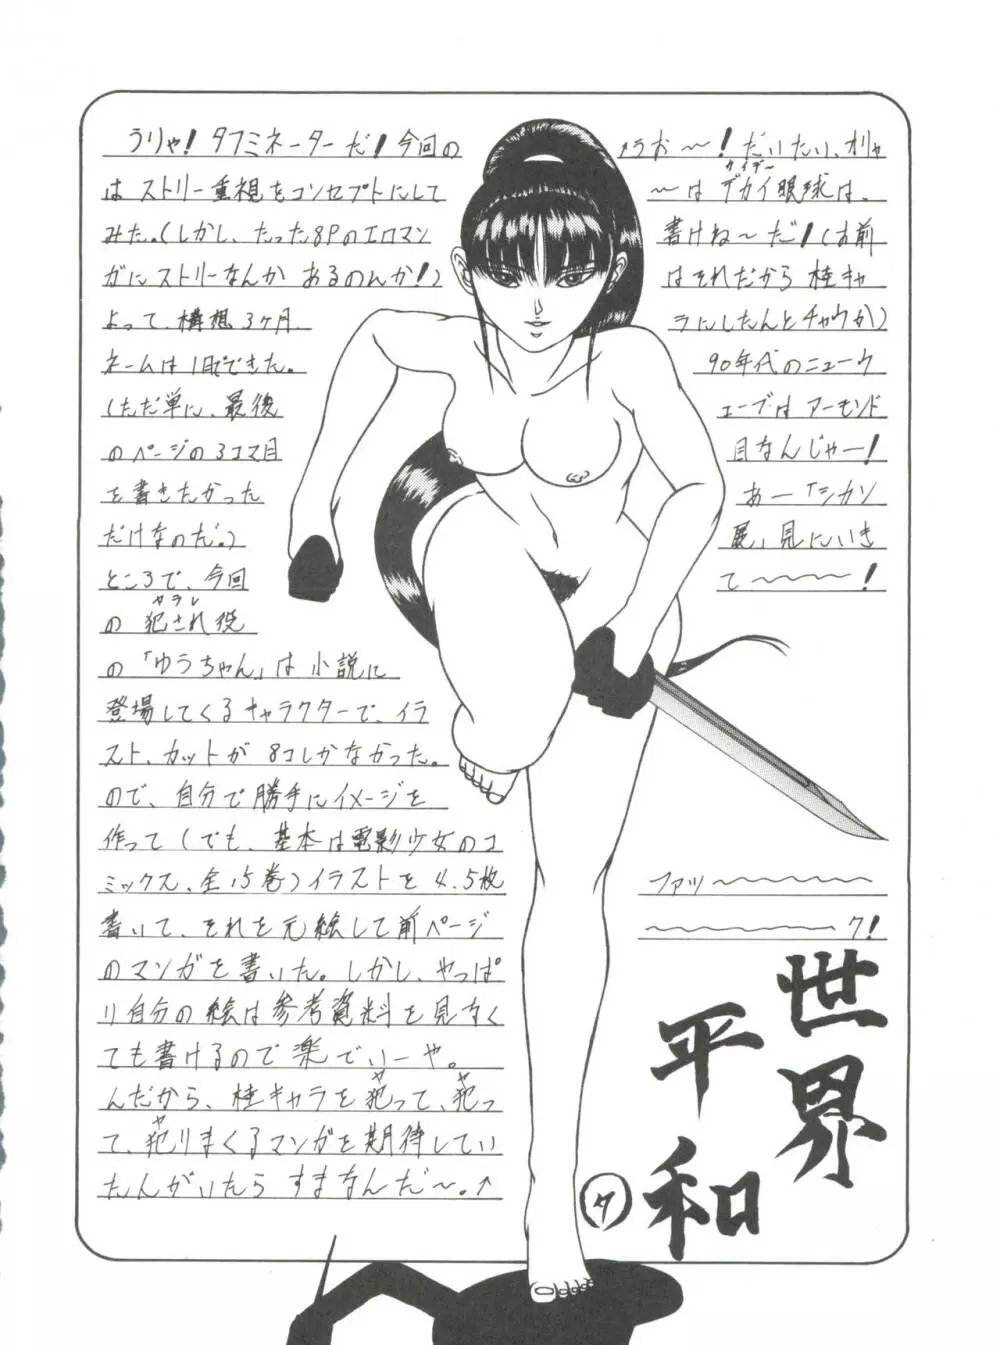 うりゃ！タフミネーターだ！今回の
はストリー重視をコンセプトにして
みた。（しかし、たった8Pのエロマン
ガにストリーなんか あるのんか！）
よって、構想3ケ月、
ネームは1日でできた。
（ただ単に、最後
のページの3コマ目
を書きたかった
だけなのだ。）
ところで、今回
の犯され役
ヤラレ
の「ゆうちゃん」は小説に
登場してくるキャラクターで、イラ
スト、カットが8コしかなかった。
ので、自分で勝手にイメージを
作って（でも、基本は電影少女のコ
ミックス、全15巻）イラストを4.5枚
書いて、それを元絵して前ページ
のマンガを書いた。しかし、やっぱ
り自分の絵は参考資料を見なく
ても書けるので楽でいーや。
んだから、桂キャラを犯って、犯っ
ヤ ヤ
て、犯りまくるマンガを期待してい
ヤ
たんがいたら すまなんだ〜。↑
うお〜！だいたい、オリャ
〜はデカイ眼球は、
カイデー
書けね〜だ！（お前
はそれだから桂キャ
ラにしたんとチャウか）
90年代のニューウ
エーブはアーモンド
目なんじゃー！
あー「シカソ
展」見にいき
て〜〜〜！
ファッ〜〜〜〜〜
〜〜〜〜〜〜ク！
世界
平和
タ